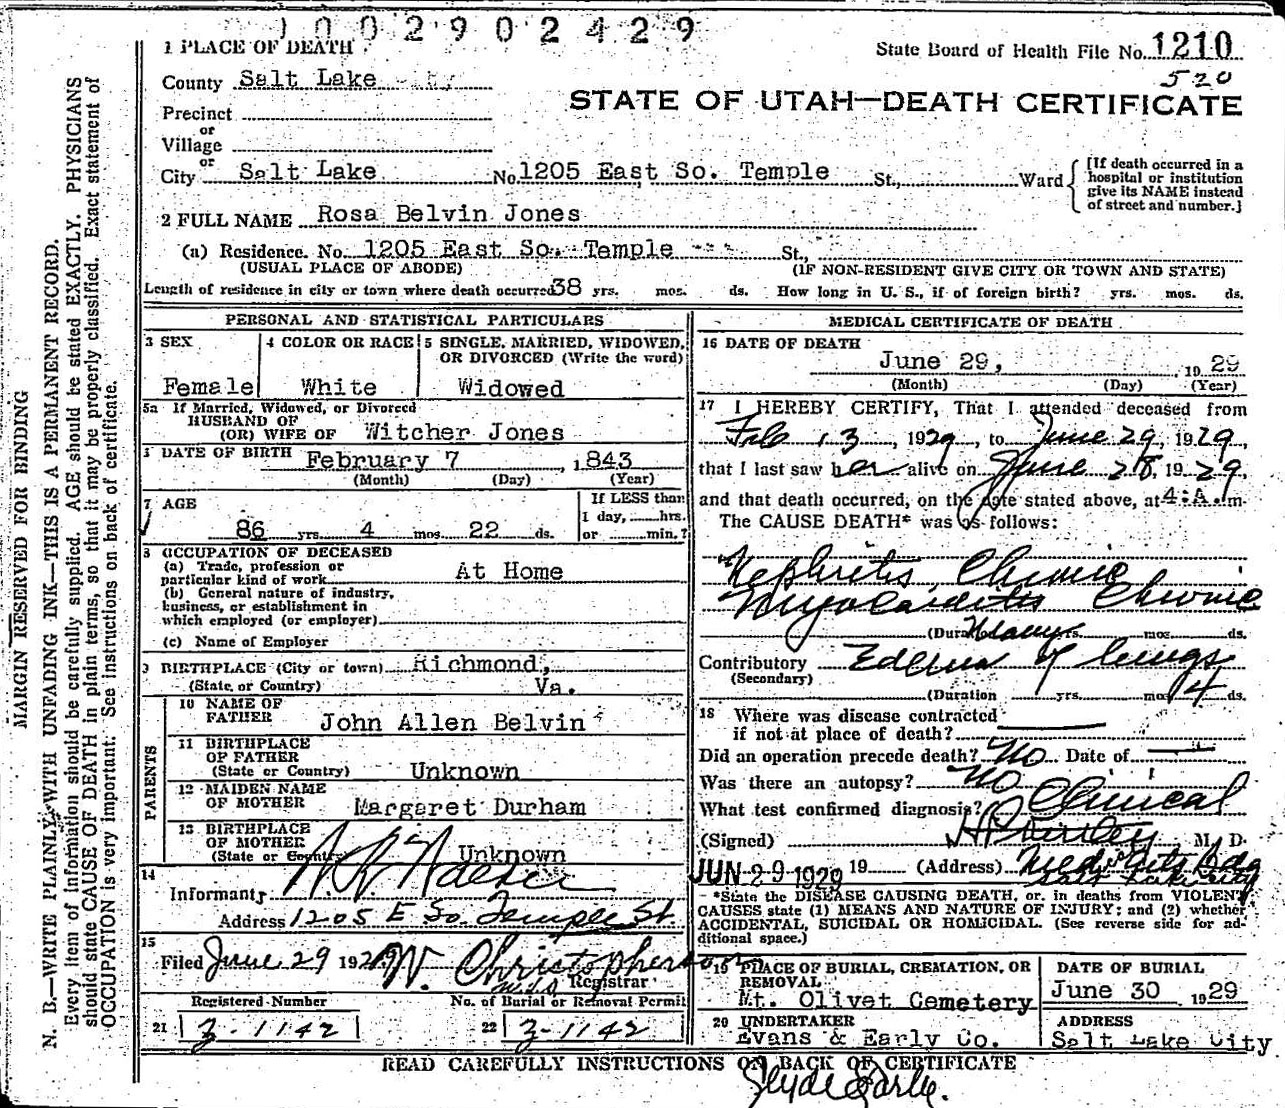 1002902429
1 PLACE OF DEATH
State Board of Health File No. 1210
County Salt Lake
520
STATE OF UTAH—DEATH CERTIFICATE
Precinct
or
Village
or
City Salt Lake No. 1205 East So. Temple St., Ward
[If death occurred in a
hospital or institution
give its NAME instead
of street and number.]
2 FULL NAME Rosa Belvin Jones
(a) Residence. No. 1205 East So. Temple St.,
(USUAL PLACE OF ABODE) (IF NON-RESIDENT GIVE CITY OR TOWN AND STATE)
Length of residence in city or town where death occurred 38 yrs. mos. ds. How long in U. S., if of foreign birth? yrs. mos. ds.
PERSONAL AND STATISTICAL PARTICULARS
3 SEX 4 COLOR OR RACE 5 SINGLE, MARRIED, WIDOWED,
OR DIVORCED (Write the word)
Female White Widowed
5a If Married, Widowed, or Divorced
HUSBAND OF
(OR) WIFE OF Witcher Jones
DATE OF BIRTH February 7, 1843
(Month) (Day) (Year)
7 AGE If LESS than
1 day, hrs.
86 yrs. 4 mos. 22 ds. or min.?
8 OCCUPATION OF DECEASED
(a) Trade, profession or
particular kind of work At Home
(b) General nature of industry,
business, or establishment in
which employed (or employer)
(c) Name of Employer
9 BIRTHPLACE (City or town) Richmond,
(State or Country) Va.
PARENTS
10 NAME OF
FATHER John Allen Belvin
11 BIRTHPLACE
OF FATHER
(State or Country) Unknown
12 MAIDEN NAME
OF MOTHER Margaret Durham
13 BIRTHPLACE
OF MOTHER
(State or Country) Unknown
14
Informant
Address 1205 E So. Temple St.
15
Filed June 29 1929 W. Christopherson
Registrar
Registered Number No. of Burial or Removal Permit
21 3-1142 22 3-1142
MEDICAL CERTIFICATE OF DEATH
16 DATE OF DEATH
June 29, 1929
(Month) (Day) (Year)
17 I HEREBY CERTIFY, That I attended deceased from
Feb 13, 1929, to June 29, 1929,
that I last saw her alive on June 28, 1929
and that death occurred, on the date stated above, at 4:A.m
The CAUSE DEATH* was as follows:
Nephritis, Chronic
Myocarditis Chronic
(Duration Many yrs. mos. ds.
Contributory Edema of lungs
(Secondary)
(Duration yrs. mos. 4 ds.
18 Where was disease contracted
if not at place of death?
Did an operation precede death? No Date of
Was there an autopsy? No
What test confirmed diagnosis? Clinical
(Signed) M. D.
JUN 29 1929 19 (Address) Med. Arts Bldg
Salt Lake City
*State the DISEASE CAUSING DEATH, or, in deaths from VIOLENT
CAUSES state (1) MEANS AND NATURE OF INJURY; and (2) whether
ACCIDENTAL, SUICIDAL OR HOMICIDAL. (See reverse side for ad-
ditional space.)
19 PLACE OF BURIAL, CREMATION, OR
REMOVAL
Mt. Olivet Cemetery
DATE OF BURIAL
June 30 1929
20 UNDERTAKER
Evans & Early Co.
ADDRESS
Salt Lake City
READ CAREFULLY INSTRUCTIONS ON BACK OF CERTIFICATE
Clyde Early.
MARGIN RESERVED FOR BINDING
N. B.—WRITE PLAINLY WITH UNFADING INK—THIS IS A PERMANENT RECORD.
Every item of information should be carefully supplied. AGE should be stated EXACTLY. PHYSICIANS
should state CAUSE OF DEATH in plain terms, so that it may be properly classified. Exact statement of
OCCUPATION is very important. See instructions on back of certificate.